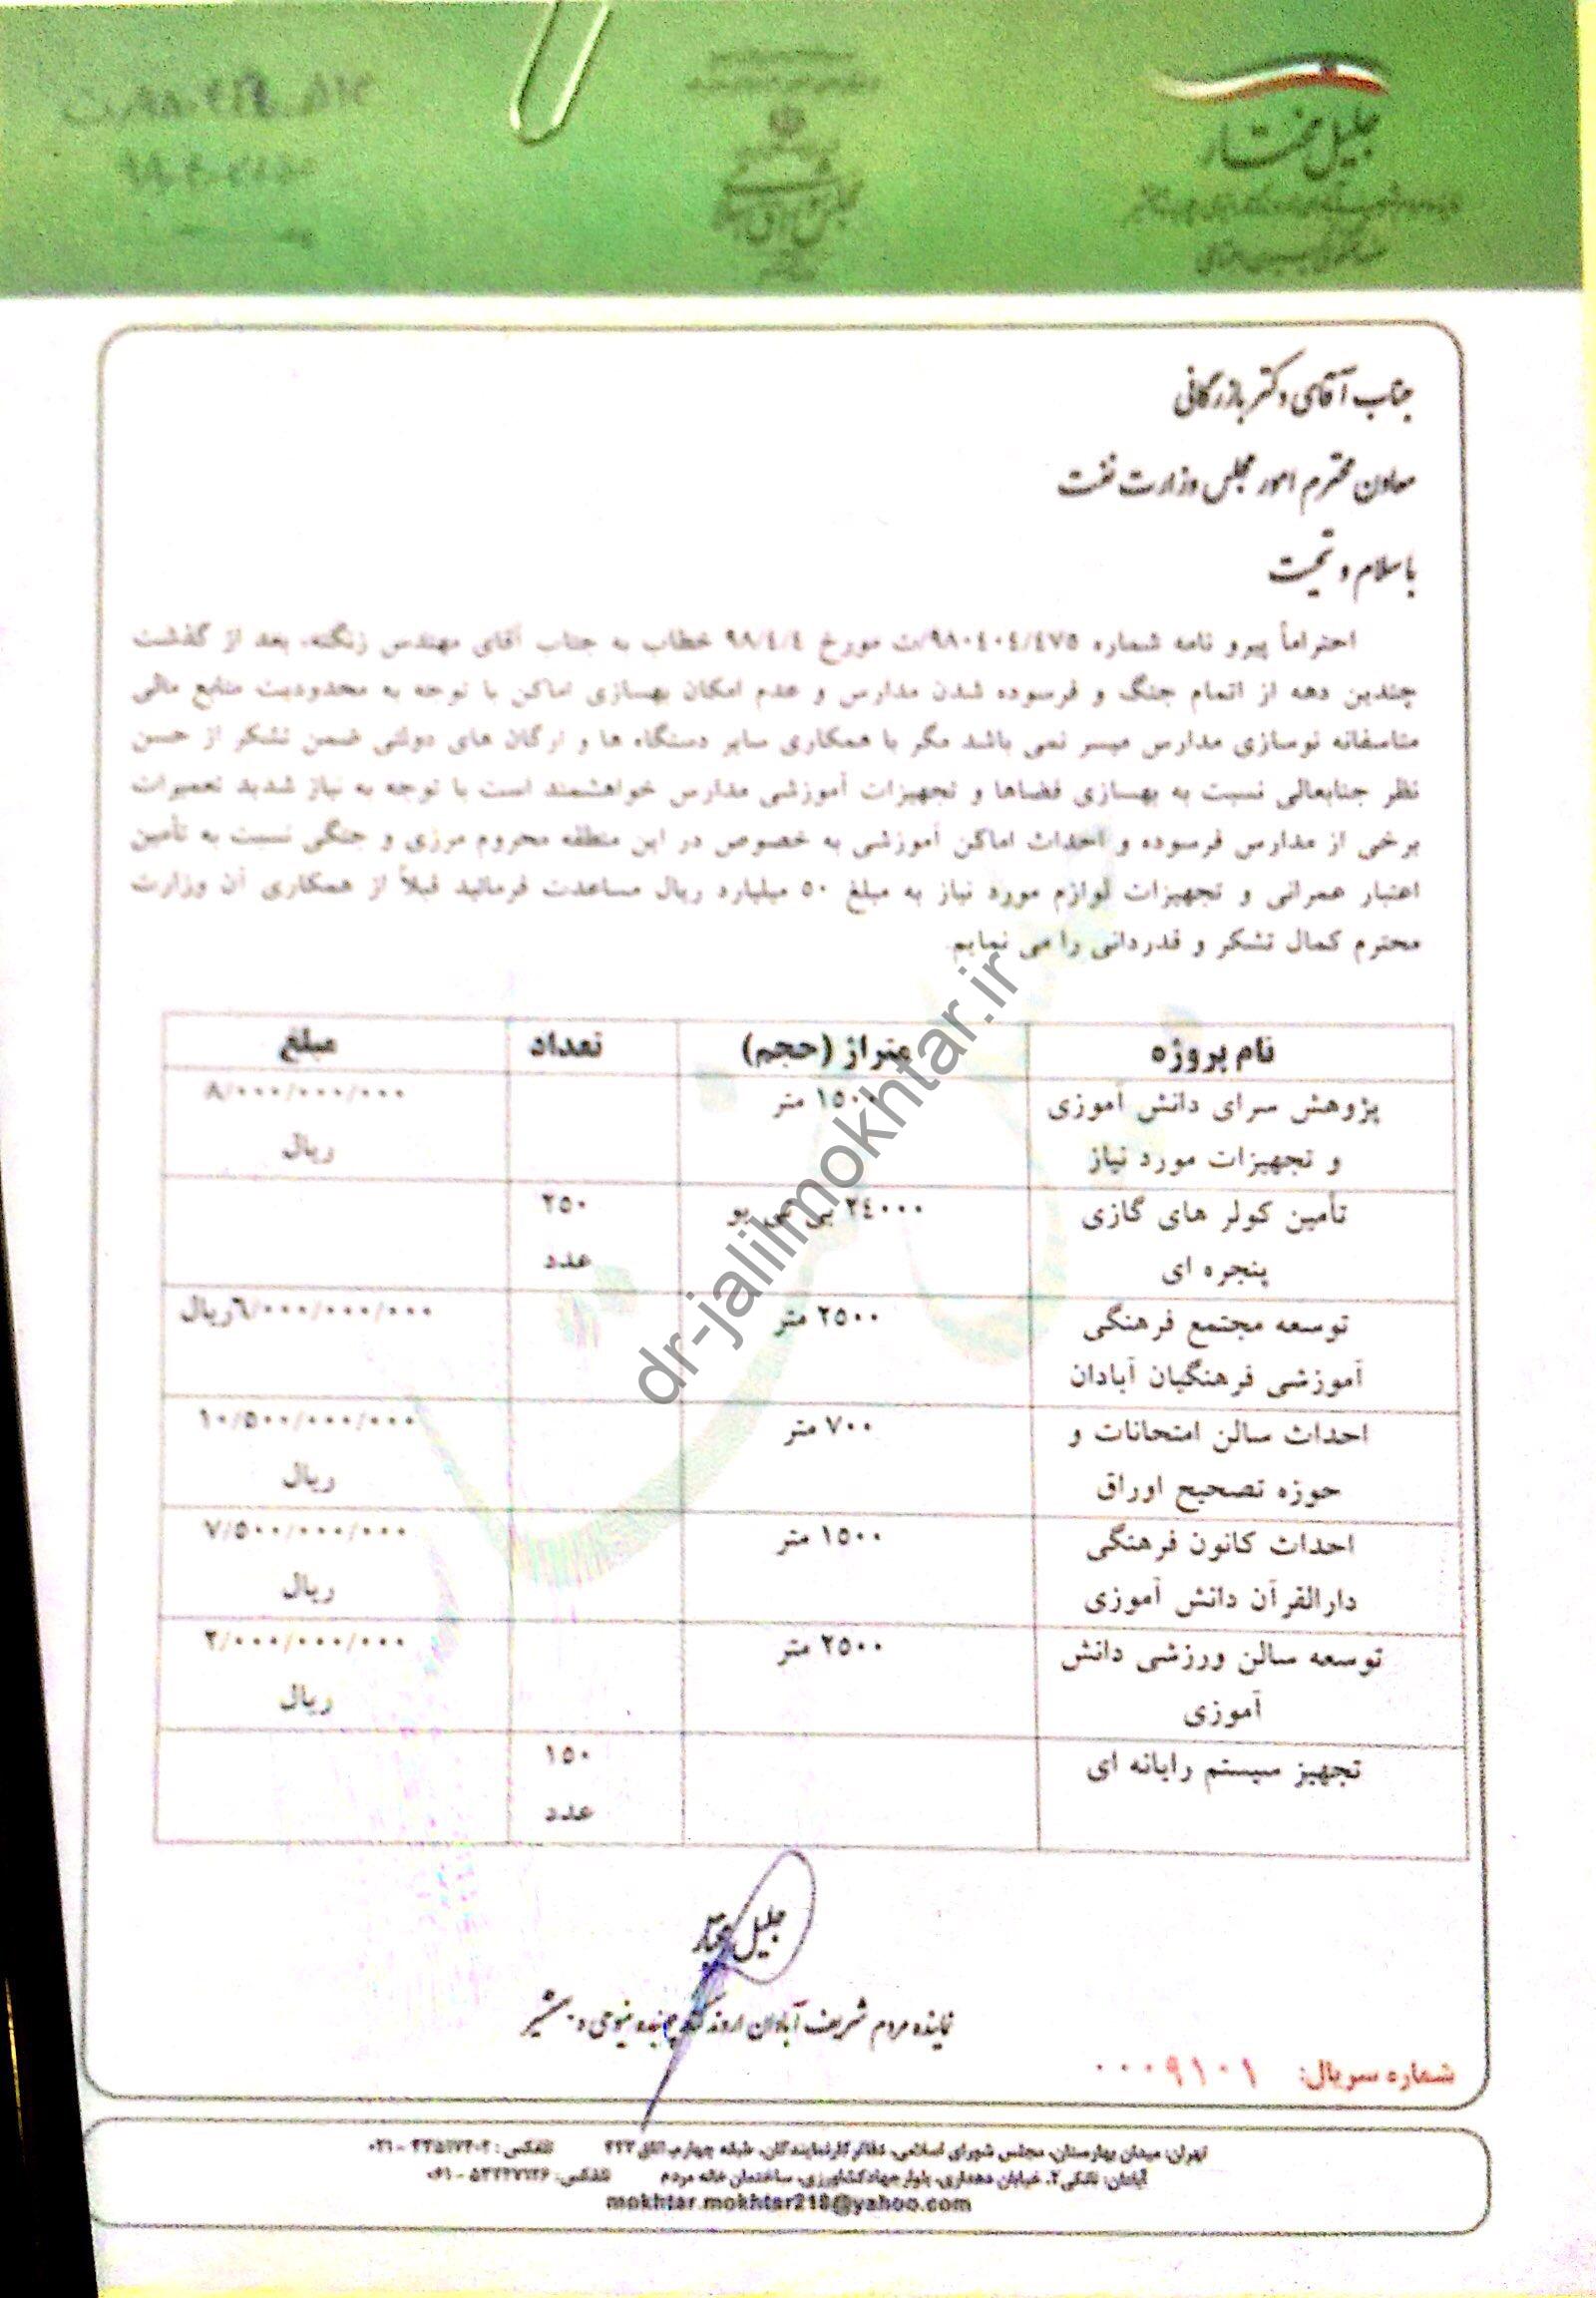 جلیل مختار
جناب آقای دکتر بازرگانی
معاون محترم امور مجلس وزارت نفت
با سلام و تحیت
احتراماً پیرو نامه شماره ۹۸۰۴۰۴/٤٧٥/ت مورخ ۹۸/٤/٤ خطاب به جناب آقای مهندس زنگنه، بعد از گذشت
چندین دهه از اتمام جنگ و فرسوده شدن مدارس و عدم امکان بهسازی اماکن با توجه به محدودیت منابع مالی
متاسفانه نوسازی مدارس میسر نمی باشد مگر با همکاری سایر دستگاه ها و ارگان های دولتی ضمن تشکر از حسن
نظر جنابعالی نسبت به بهسازی فضاها و تجهیزات آموزشی مدارس خواهشمند است با توجه به نیاز شدید تعمیرات
برخی از مدارس فرسوده و احداث اماکن آموزشی به خصوص در این منطقه محروم مرزی و جنگی نسبت به تأمین
اعتبار عمرانی و تجهیزات لوازم مورد نیاز به مبلغ ۵۰ میلیارد ریال مساعدت فرمائید قبلاً از همکاری آن وزارت
محترم کمال تشکر و قدردانی را می نمایم.
نام پروژه متراژ (حجم) تعداد مبلغ
پژوهش سرای دانش آموزی ۱۵۰۰ متر ۸/۰۰۰/۰۰۰/۰۰۰
و تجهیزات مورد نیاز ریال
تأمین کولر های گازی ۲٤۰۰۰ بی تی یو ۲۵۰
پنجره ای عدد
توسعه مجتمع فرهنگی ۲۵۰۰ متر ٦/۰۰۰/۰۰۰/۰۰۰ریال
آموزشی فرهنگیان آبادان
احداث سالن امتحانات و ۷۰۰ متر ۱۰/۵۰۰/۰۰۰/۰۰۰
حوزه تصحیح اوراق ریال
احداث کانون فرهنگی ۱۵۰۰ متر ۷/۵۰۰/۰۰۰/۰۰۰
دارالقرآن دانش آموزی ریال
توسعه سالن ورزشی دانش ۲۵۰۰ متر ۲/۰۰۰/۰۰۰/۰۰۰
آموزی ریال
تجهیز سیستم رایانه ای ۱۵۰
عدد
dr-jalilmokhtar.ir
جلیل مختار
نماینده مردم شریف آبادان اروندکنار چوئبده مینوحی و
شماره سریال: ۰۰۰۹۱۰۱
تهران: میدان بهارستان، مجلس شورای اسلامی، دفاتر کار نمایندگان، طبقه چهارم، اتاق تلفکس:
آبادان: تانکی۲، خیابان دهداری، بلوار جهاد کشاورزی، ساختمان خانه مردم تلفکس:
mokhtar.mokhtar218@yahoo.com